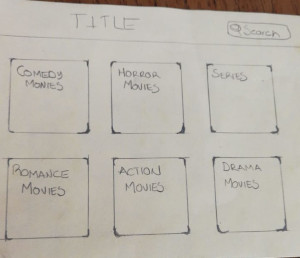 TITLE
Search
COMEDY
MOVIES
HORROR
MOVIES
SERIES
ROMANCE
MOVIES
ACTION
MOVIES
DRAMA
MOVIES